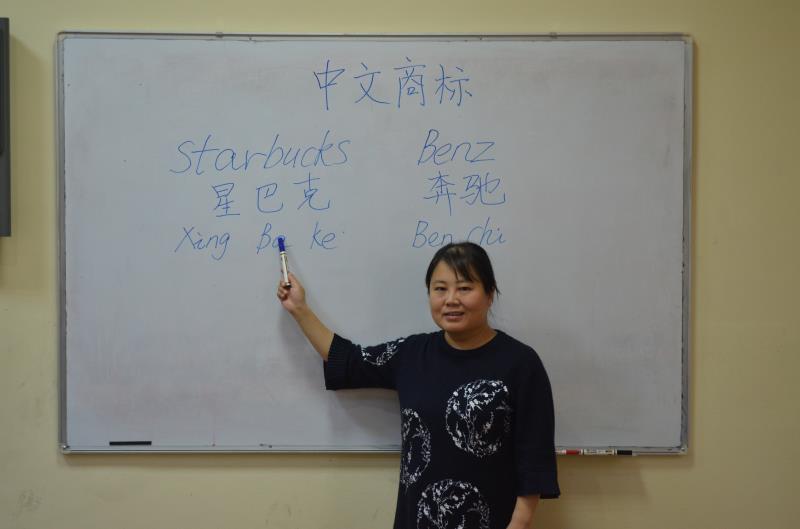 中文商标
Starbucks Benz
星巴克 奔驰
Xing Ba ke Ben chi